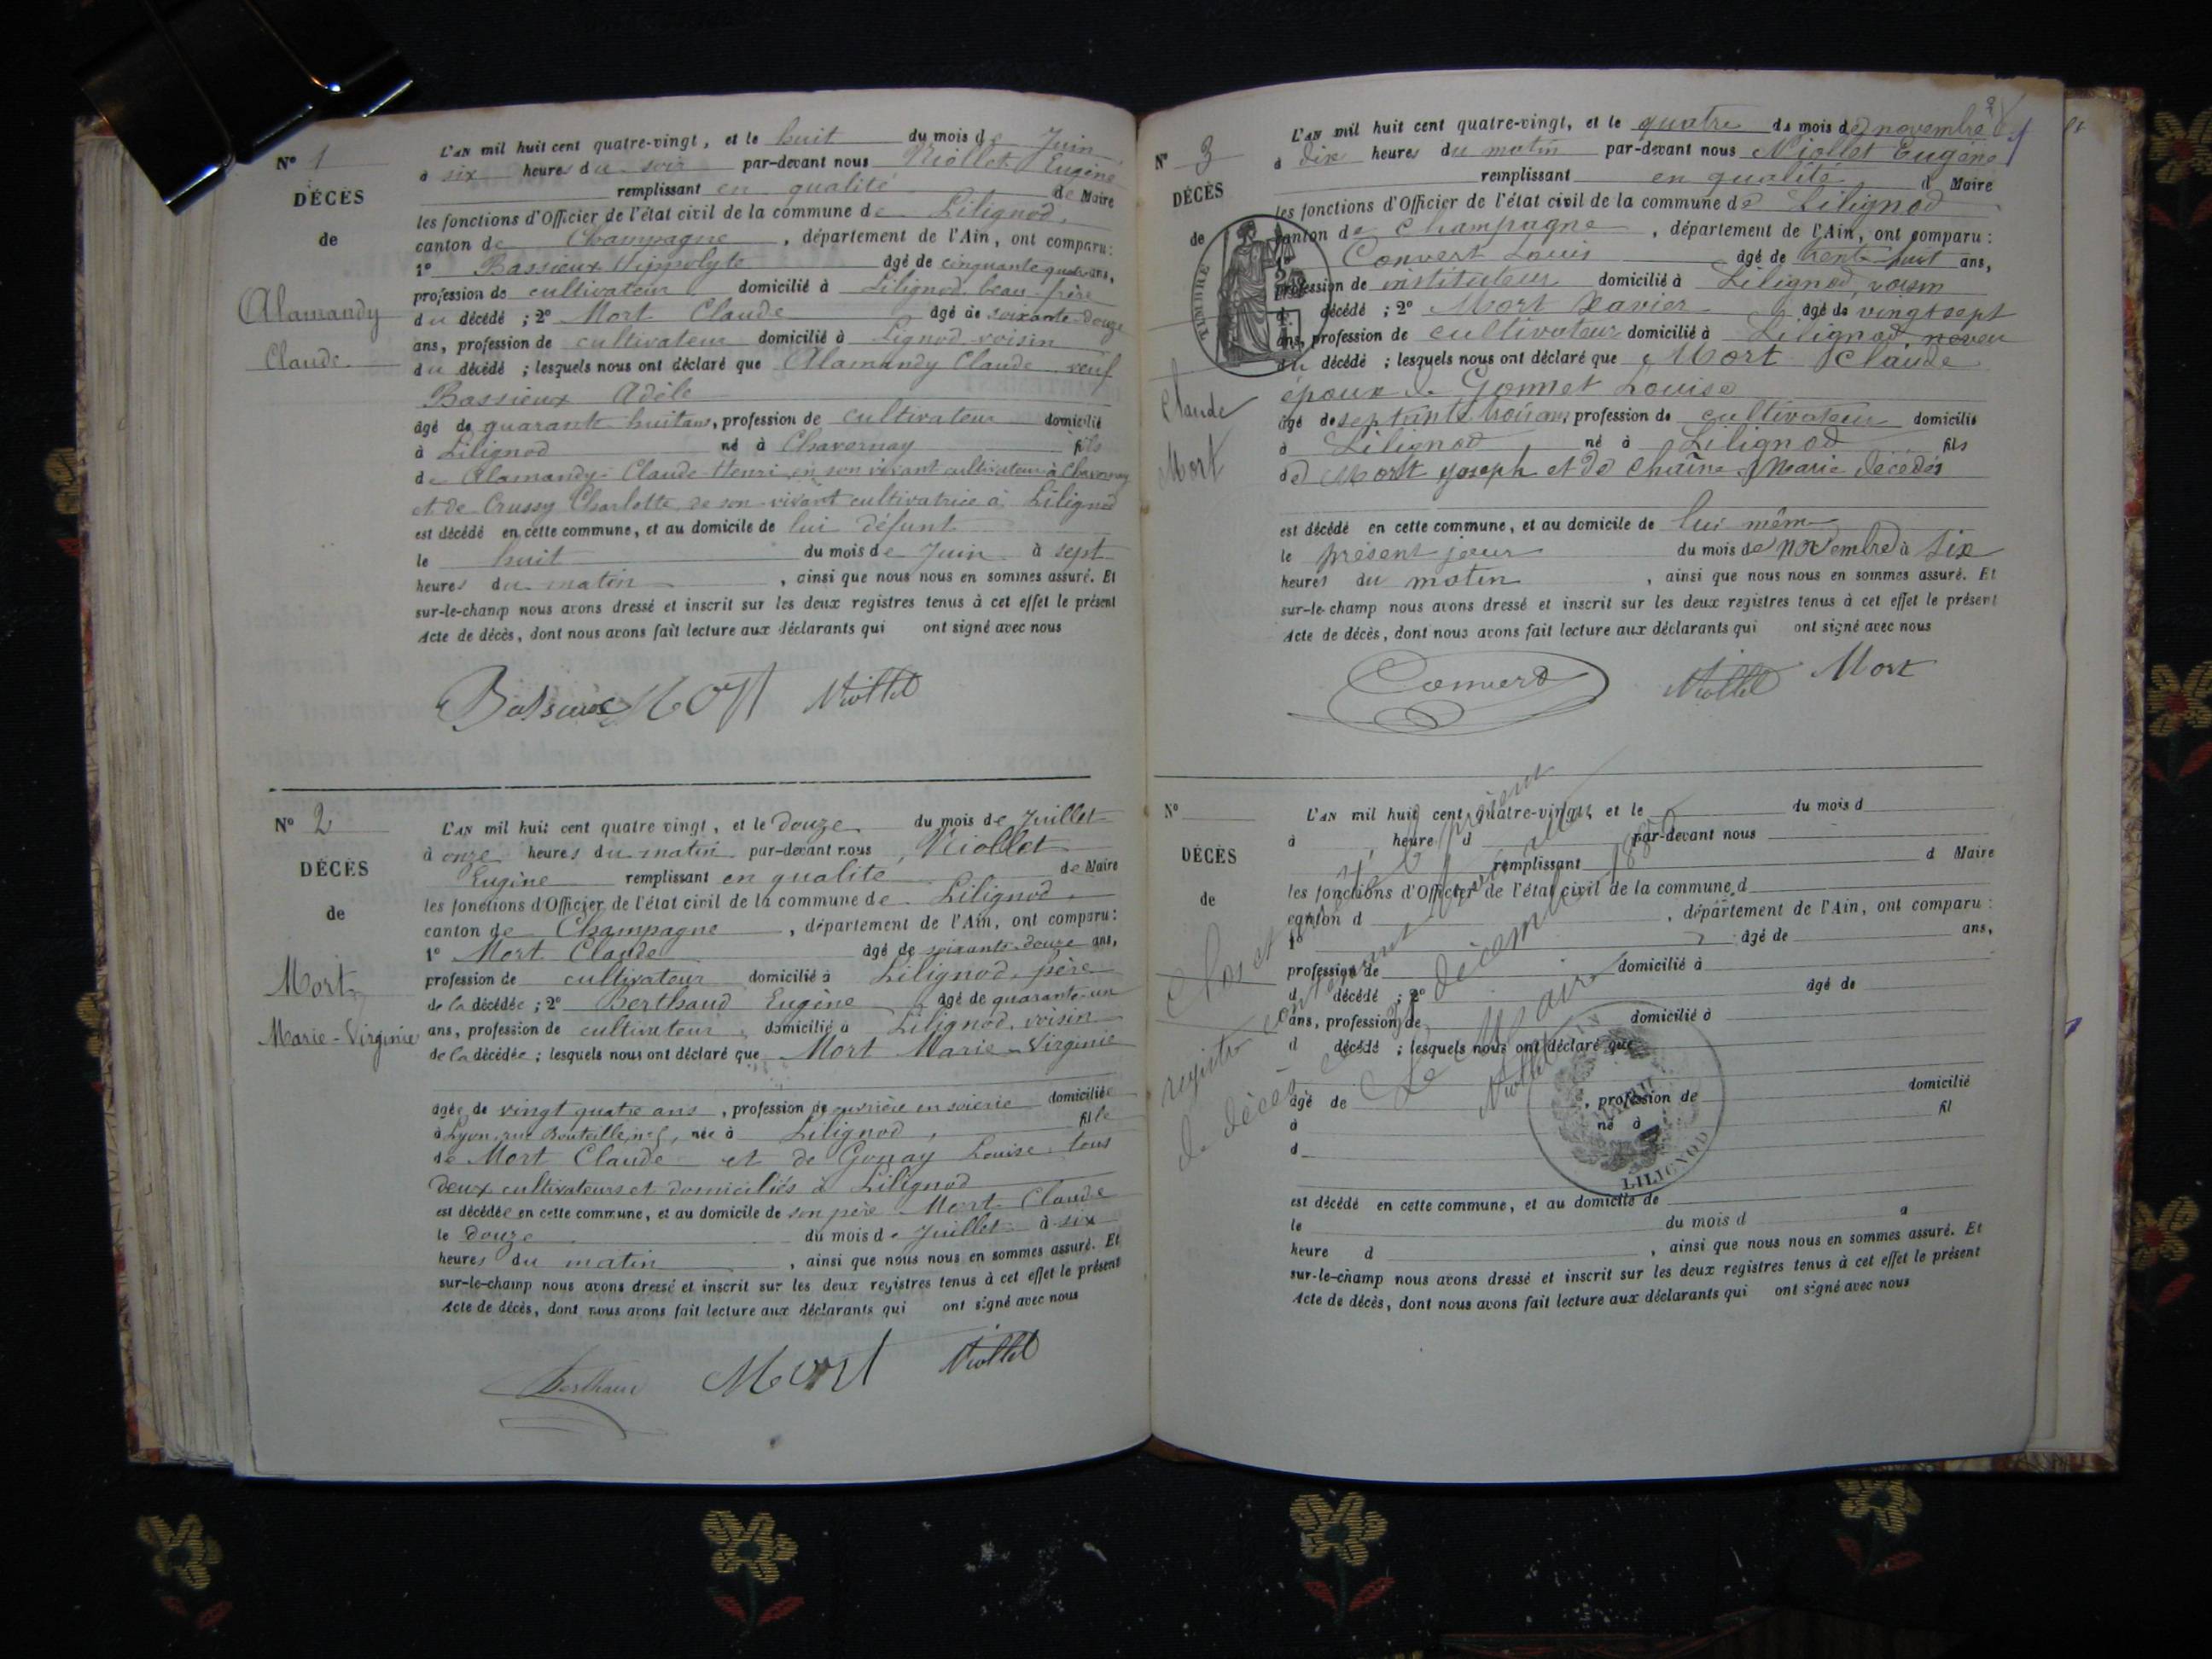 N° 1
DÉCÈS
de
Alamandy
Claude
L'AN mil huit cent quatre-vingt, et le huit du mois de Juin
à six heures du soir par-devant nous Niollet Eugène
remplissant en qualité de Maire
les fonctions d'Officier de l'état civil de la commune de Lilignod.
canton de Champagne, département de l'Ain, ont comparu:
1° Bassieux Hippolyte âgé de cinquante quatre ans,
profession de cultivateur domicilié à Lilignod, beau-frère
du décédé ; 2° Mort Claude âgé de soixante-douze
ans, profession de cultivateur domicilié à Lignod voisin
du décédé ; lesquels nous ont déclaré que Alamandy Claude veuf
Bassieux Adèle
âgé de quarante huit ans, profession de cultivateur domicilié
à Lilignod né à Chavornay fils
de Alamandy Claude Henri en son vivant cultivateur à Chavornay
et de Crussy Charlotte de son vivant cultivatrice à Lilignod
est décédé en cette commune, et au domicile de lui défunt
le huit du mois de Juin à sept
heures du matin, ainsi que nous nous en sommes assuré. Et
sur-le-champ nous avons dressé et inscrit sur les deux registres tenus à cet effet le présent
Acte de décès, dont nous avons fait lecture aux déclarants qui ont signé avec nous
Bassieux Mort Niollet
N° 2
DÉCÈS
de
Mort
Marie-Virginie
L'AN mil huit cent quatre vingt, et le douze du mois de Juillet
à onze heures du matin par-devant nous, Niollet
Eugène remplissant en qualité de Maire
les fonctions d'Officier de l'état civil de la commune de Lilignod.
canton de Champagne, département de l'Ain, ont comparu:
1° Mort Claude âgé de soixante-douze ans,
profession de cultivateur domicilié à Lilignod, père
de la décédée ; 2° Berthaud Eugène âgé de quarante-un
ans, profession de cultivateur, domicilié à Lilignod, voisin
de la décédée ; lesquels nous ont déclaré que Mort Marie-Virginie
âgée de vingt quatre ans, profession de ouvrière en soierie domiciliée
à Lyon, rue Bouteille, n°, née à Lilignod, fille
de Mort Claude et de Gonay Louise tous
deux cultivateurs et domiciliés à Lilignod
est décédée en cette commune, et au domicile de son père Mort Claude
le douze du mois de Juillet à six
heures du matin, ainsi que nous nous en sommes assuré. Et
sur-le-champ nous avons dressé et inscrit sur les deux registres tenus à cet effet le présent
Acte de décès, dont nous avons fait lecture aux déclarants qui ont signé avec nous
Berthaud Mort Niollet
N° 3
DÉCÈS
de
TIMBRE
Claude
Mort
L'AN mil huit cent quatre-vingt, et le quatre du mois de novembre
à dix heures du matin par-devant nous Niollet Eugène
remplissant en qualité d Maire
les fonctions d'Officier de l'état civil de la commune de Lilignod
canton de Champagne, département de l'Ain, ont comparu :
1° Convert Louis âgé de trente-huit ans,
profession de instituteur domicilié à Lilignod, voisin
du décédé ; 2° Mort Xavier âgé de vingt sept
ans, profession de cultivateur domicilié à Lilignod neveu
du décédé ; lesquels nous ont déclaré que Mort Claude
époux de Gonnet Louise
âgé de septante trois ans, profession de cultivateur domicilié
à Lilignod né à Lilignod fils
de Mort Joseph et de Chaîne Marie décédés
est décédé en cette commune, et au domicile de lui même
le présent jour du mois de novembre à six
heures du matin, ainsi que nous nous en sommes assuré. Et
sur-le-champ nous avons dressé et inscrit sur les deux registres tenus à cet effet le présent
Acte de décès, dont nous avons fait lecture aux déclarants qui ont signé avec nous
Convert Niollet Mort
N°
DÉCÈS
de
L'AN mil huit cent quatre-vingt, et le du mois d
à heure d par-devant nous
remplissant d Maire
les fonctions d'Officier de l'état civil de la commune d
canton d, département de l'Ain, ont comparu :
1° âgé de ans,
profession de domicilié à
d décédé ; 2° âgé de
ans, profession de domicilié à
d décédé ; lesquels nous ont déclaré que
âgé de, profession de domicilié
à né à fil
d
est décédé en cette commune, et au domicile de
le du mois d à
heure d, ainsi que nous nous en sommes assuré. Et
sur-le-champ nous avons dressé et inscrit sur les deux registres tenus à cet effet le présent
Acte de décès, dont nous avons fait lecture aux déclarants qui ont signé avec nous
Clos et le présent
registre
de décès 31 décembre 1880
Le Maire
Niollet
MAIRIE
LILIGNOD